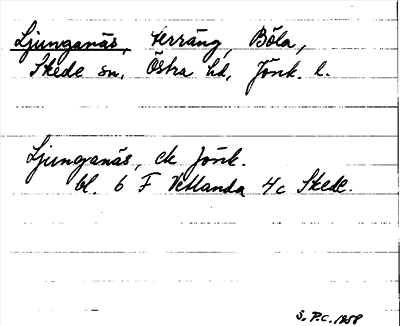 Ljunganäs, terräng, Böla,
Skede sn, Östra hd, Jönk. l.
Ljunganäs, ek Jönk.
bl. 6 F Vetlanda 4c Skede.
S. P.C. 1958